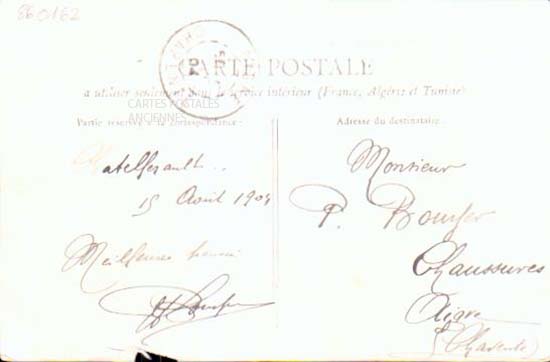 860162
CARTE POSTALE
à utiliser seulement dans le service intérieur (France, Algérie et Tunisie)
CARTES POSTALES
ANCIENNES
Partie réservée à la correspondance.
Adresse du destinataire.
Chatellerault
15 Août 1904
Meilleur
Monsieur
P.
Chaussures
Aigre
(Charente)